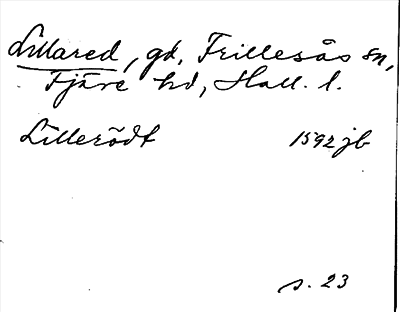 Lillared, gd, Frillesås sn,
Fjäre hd, Hall. l.
Lillerödt 1592 jb
s. 23